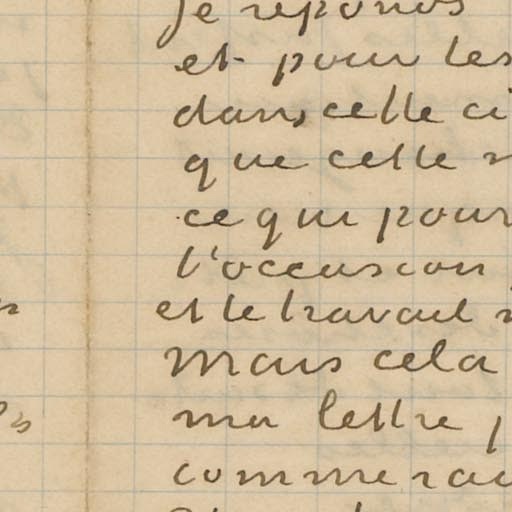 Je reponds
et pour les
dans celle ci
que celle
ce qui pour
l'occasion
et le travail
Mais cela
ma lettre
comme